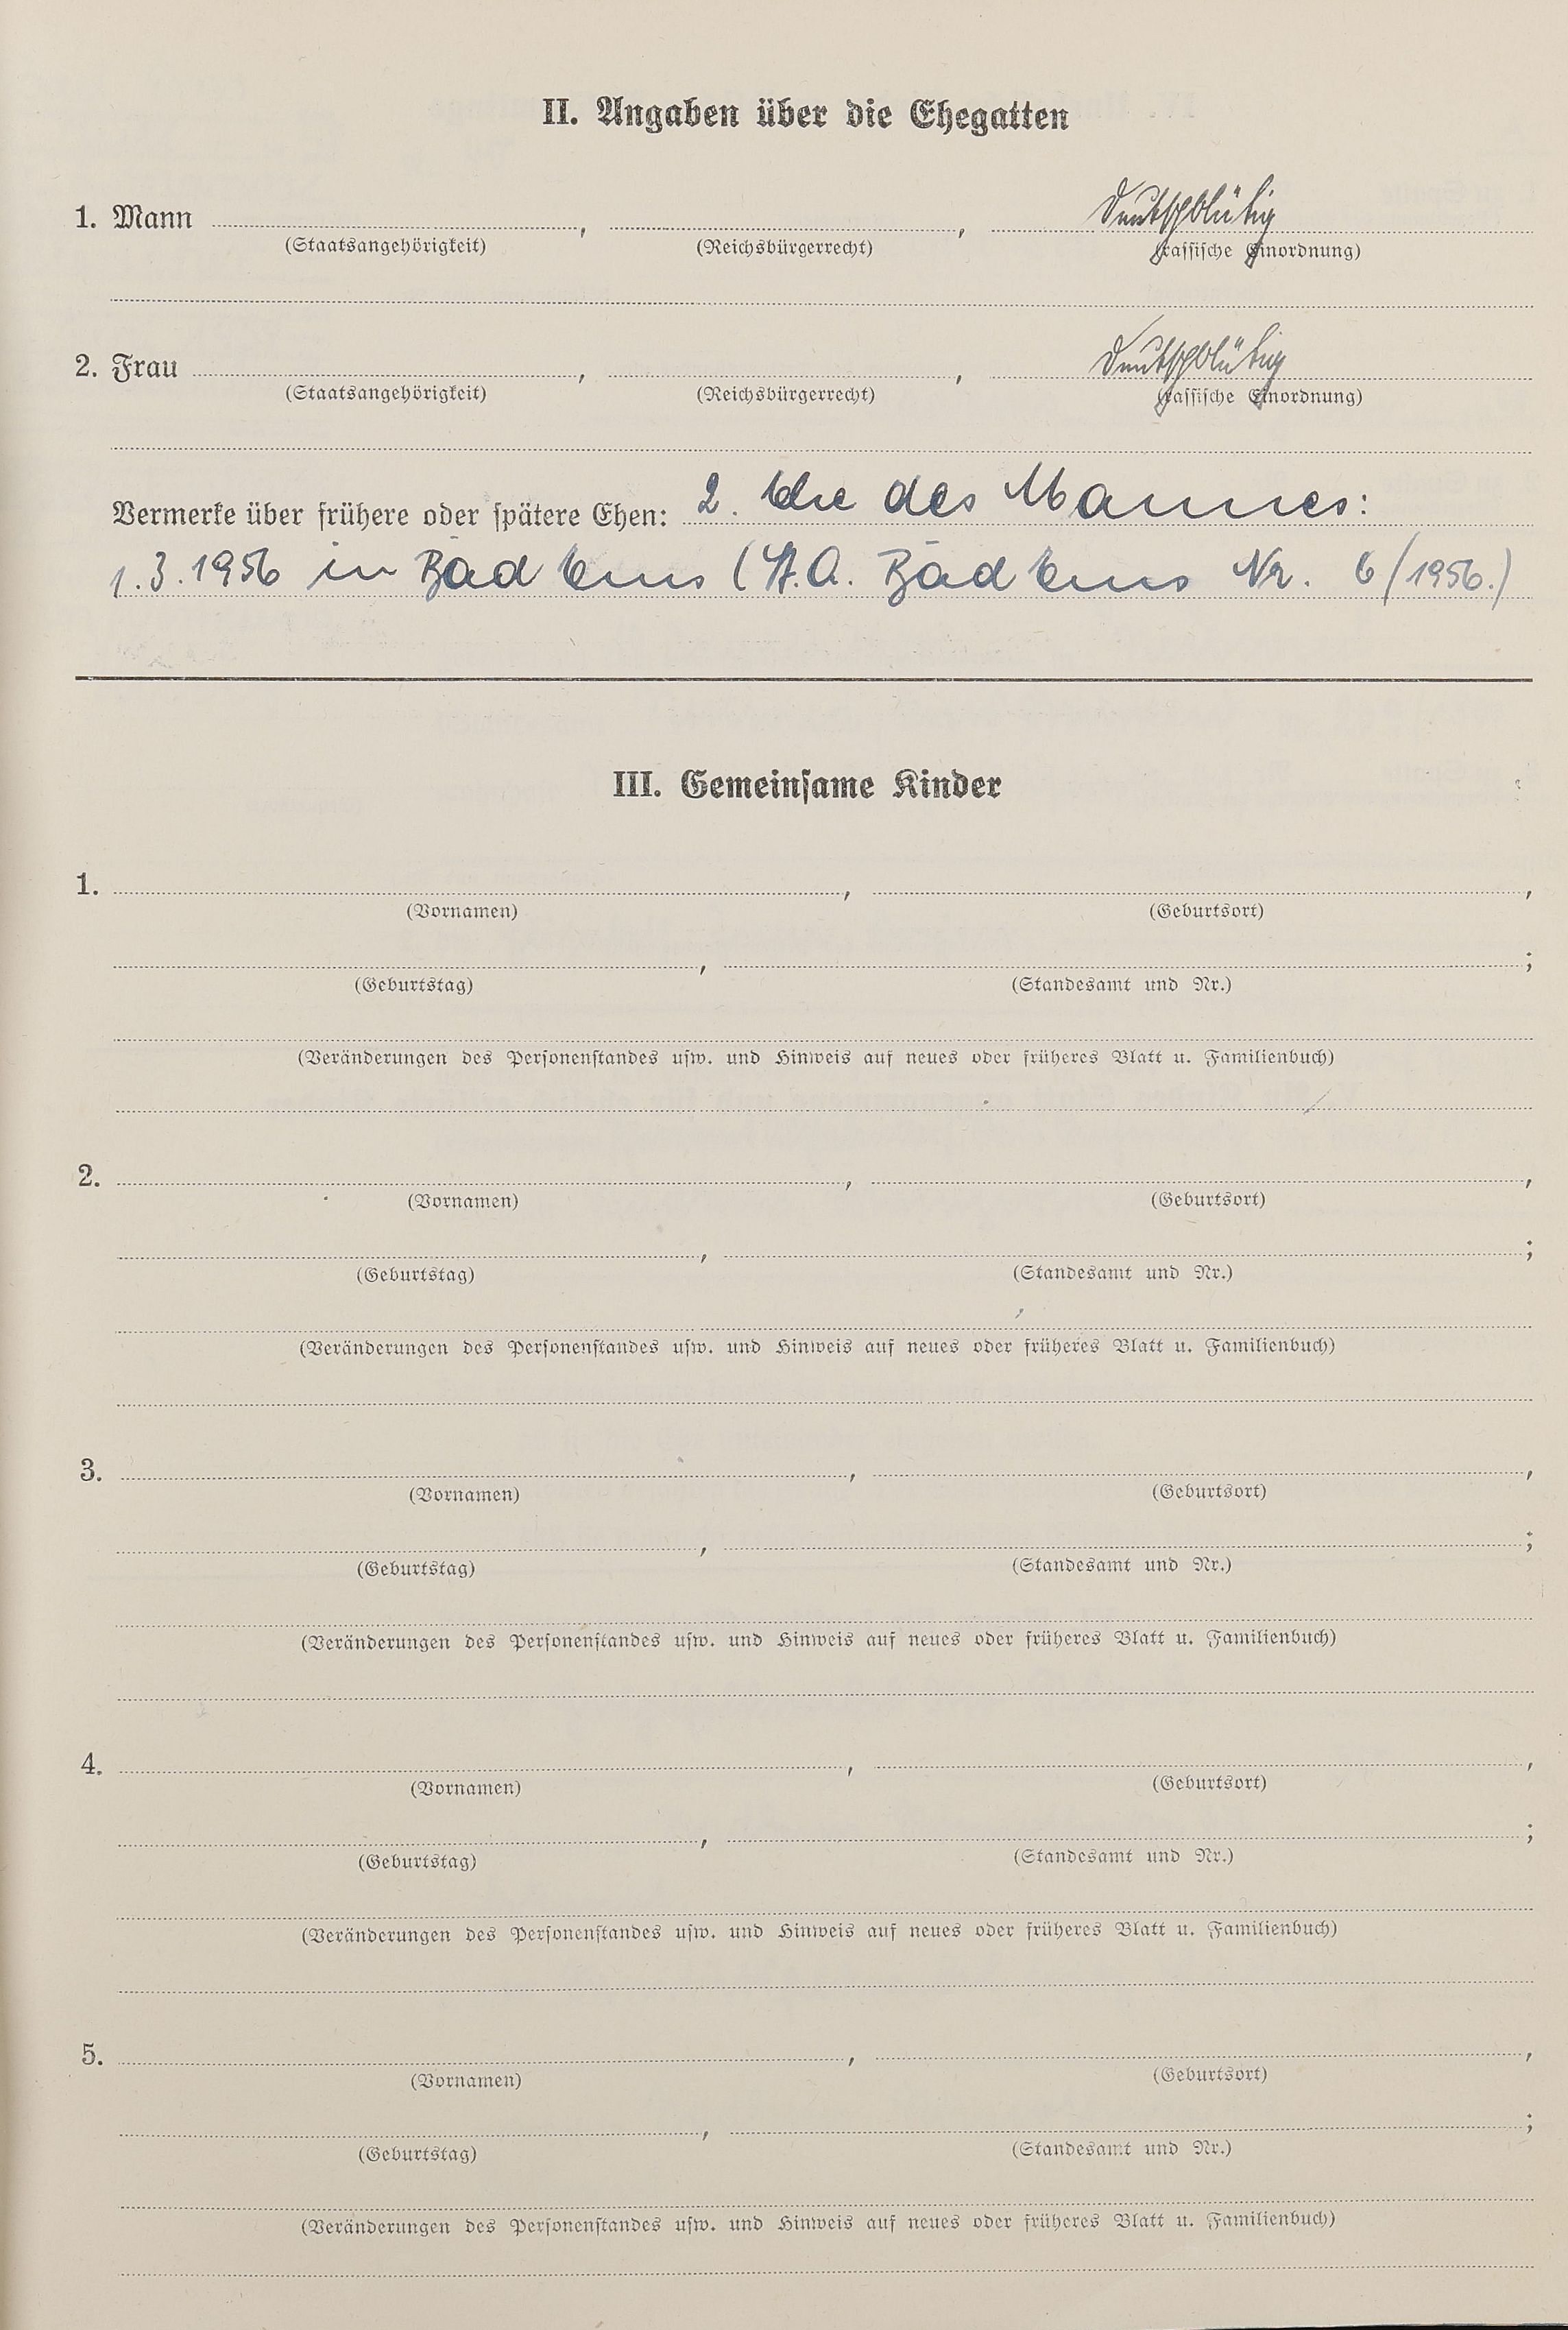 II. Angaben über die Ehegatten
1. Mann , , deutschblütig
(Staatsangehörigkeit) (Reichsbürgerrecht) (rassische Einordnung)
2. Frau , , deutschblütig
(Staatsangehörigkeit) (Reichsbürgerrecht) (rassische Einordnung)
Vermerke über frühere oder spätere Ehen: 2. Ehe des Mannes:
1.3.1956 in Bad Ems (St.A. Bad Ems Nr. 6/1956.)
III. Gemeinsame Kinder
1. , ,
(Vornamen) (Geburtsort)
, ;
(Geburtstag) (Standesamt und Nr.)
(Veränderungen des Personenstandes usw. und Hinweis auf neues oder früheres Blatt u. Familienbuch)
2. , ,
(Vornamen) (Geburtsort)
, ;
(Geburtstag) (Standesamt und Nr.)
(Veränderungen des Personenstandes usw. und Hinweis auf neues oder früheres Blatt u. Familienbuch)
3. , ,
(Vornamen) (Geburtsort)
, ;
(Geburtstag) (Standesamt und Nr.)
(Veränderungen des Personenstandes usw. und Hinweis auf neues oder früheres Blatt u. Familienbuch)
4. , ,
(Vornamen) (Geburtsort)
, ;
(Geburtstag) (Standesamt und Nr.)
(Veränderungen des Personenstandes usw. und Hinweis auf neues oder früheres Blatt u. Familienbuch)
5. , ,
(Vornamen) (Geburtsort)
, ;
(Geburtstag) (Standesamt und Nr.)
(Veränderungen des Personenstandes usw. und Hinweis auf neues oder früheres Blatt u. Familienbuch)